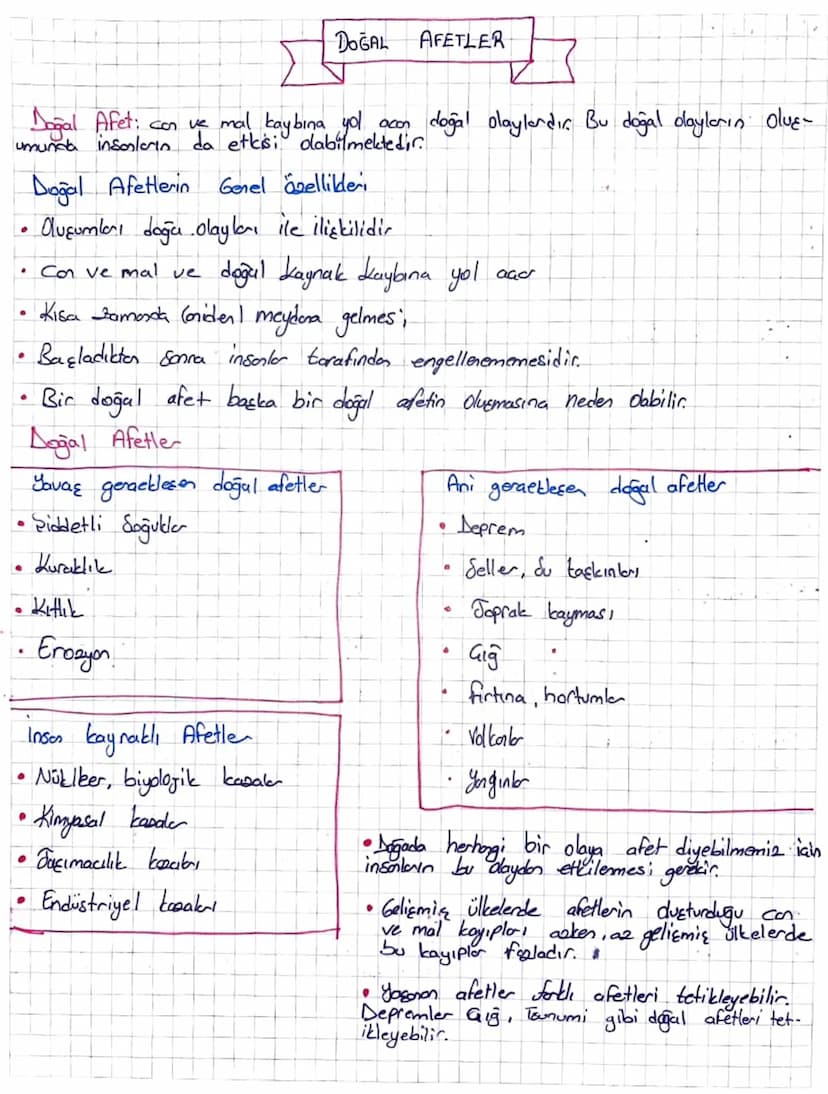 DOĞAL AFETLER
Doğal Afet: can ve mal kaybına yol açan doğal olaylardır. Bu doğal olayların oluş-
umunda insanların da etkisi olabilmektedir.
Doğal Afetlerin Genel özellikleri
• Oluşumları doğa olayları ile ilişkilidir
• Can ve mal ve doğal kaynak kaybına yol açar
• Kısa zamanda (aniden) meydana gelmesi,
• Başladıktan sonra insanlar tarafından engellenememesidir.
• Bir doğal afet başka bir doğal afetin oluşmasına neden olabilir.
Doğal Afetler
Yavaş gerçekleşen doğal afetler
• Şiddetli Soğuklar
• Kuraklık
• Kıtlık
• Erozyon
Ani gerçekleşen doğal afetler
• Deprem
• Seller, Su taşkınları
• Toprak kayması
• Çığ
• fırtına, hortumlar
• Volkanlar
• Yangınlar
İnsan kaynaklı Afetler
• Nükleer, biyolojik kazalar
• Kimyasal kazalar
• Taşımacılık kazaları
• Endüstriyel kazaları
• Doğada herhangi bir olaya afet diyebilmemiz için
insanların bu olaydan etkilenmesi gerekir.
• Gelişmiş ülkelerde afetlerin oluşturduğu can
ve mal kayıpları azken, az gelişmiş ülkelerde
bu kayıplar fazladır.
• Yaşanan afetler farklı afetleri tetikleyebilir.
Depremler Çığ, Tsunumi gibi doğal afetleri tet-
ikleyebilir.